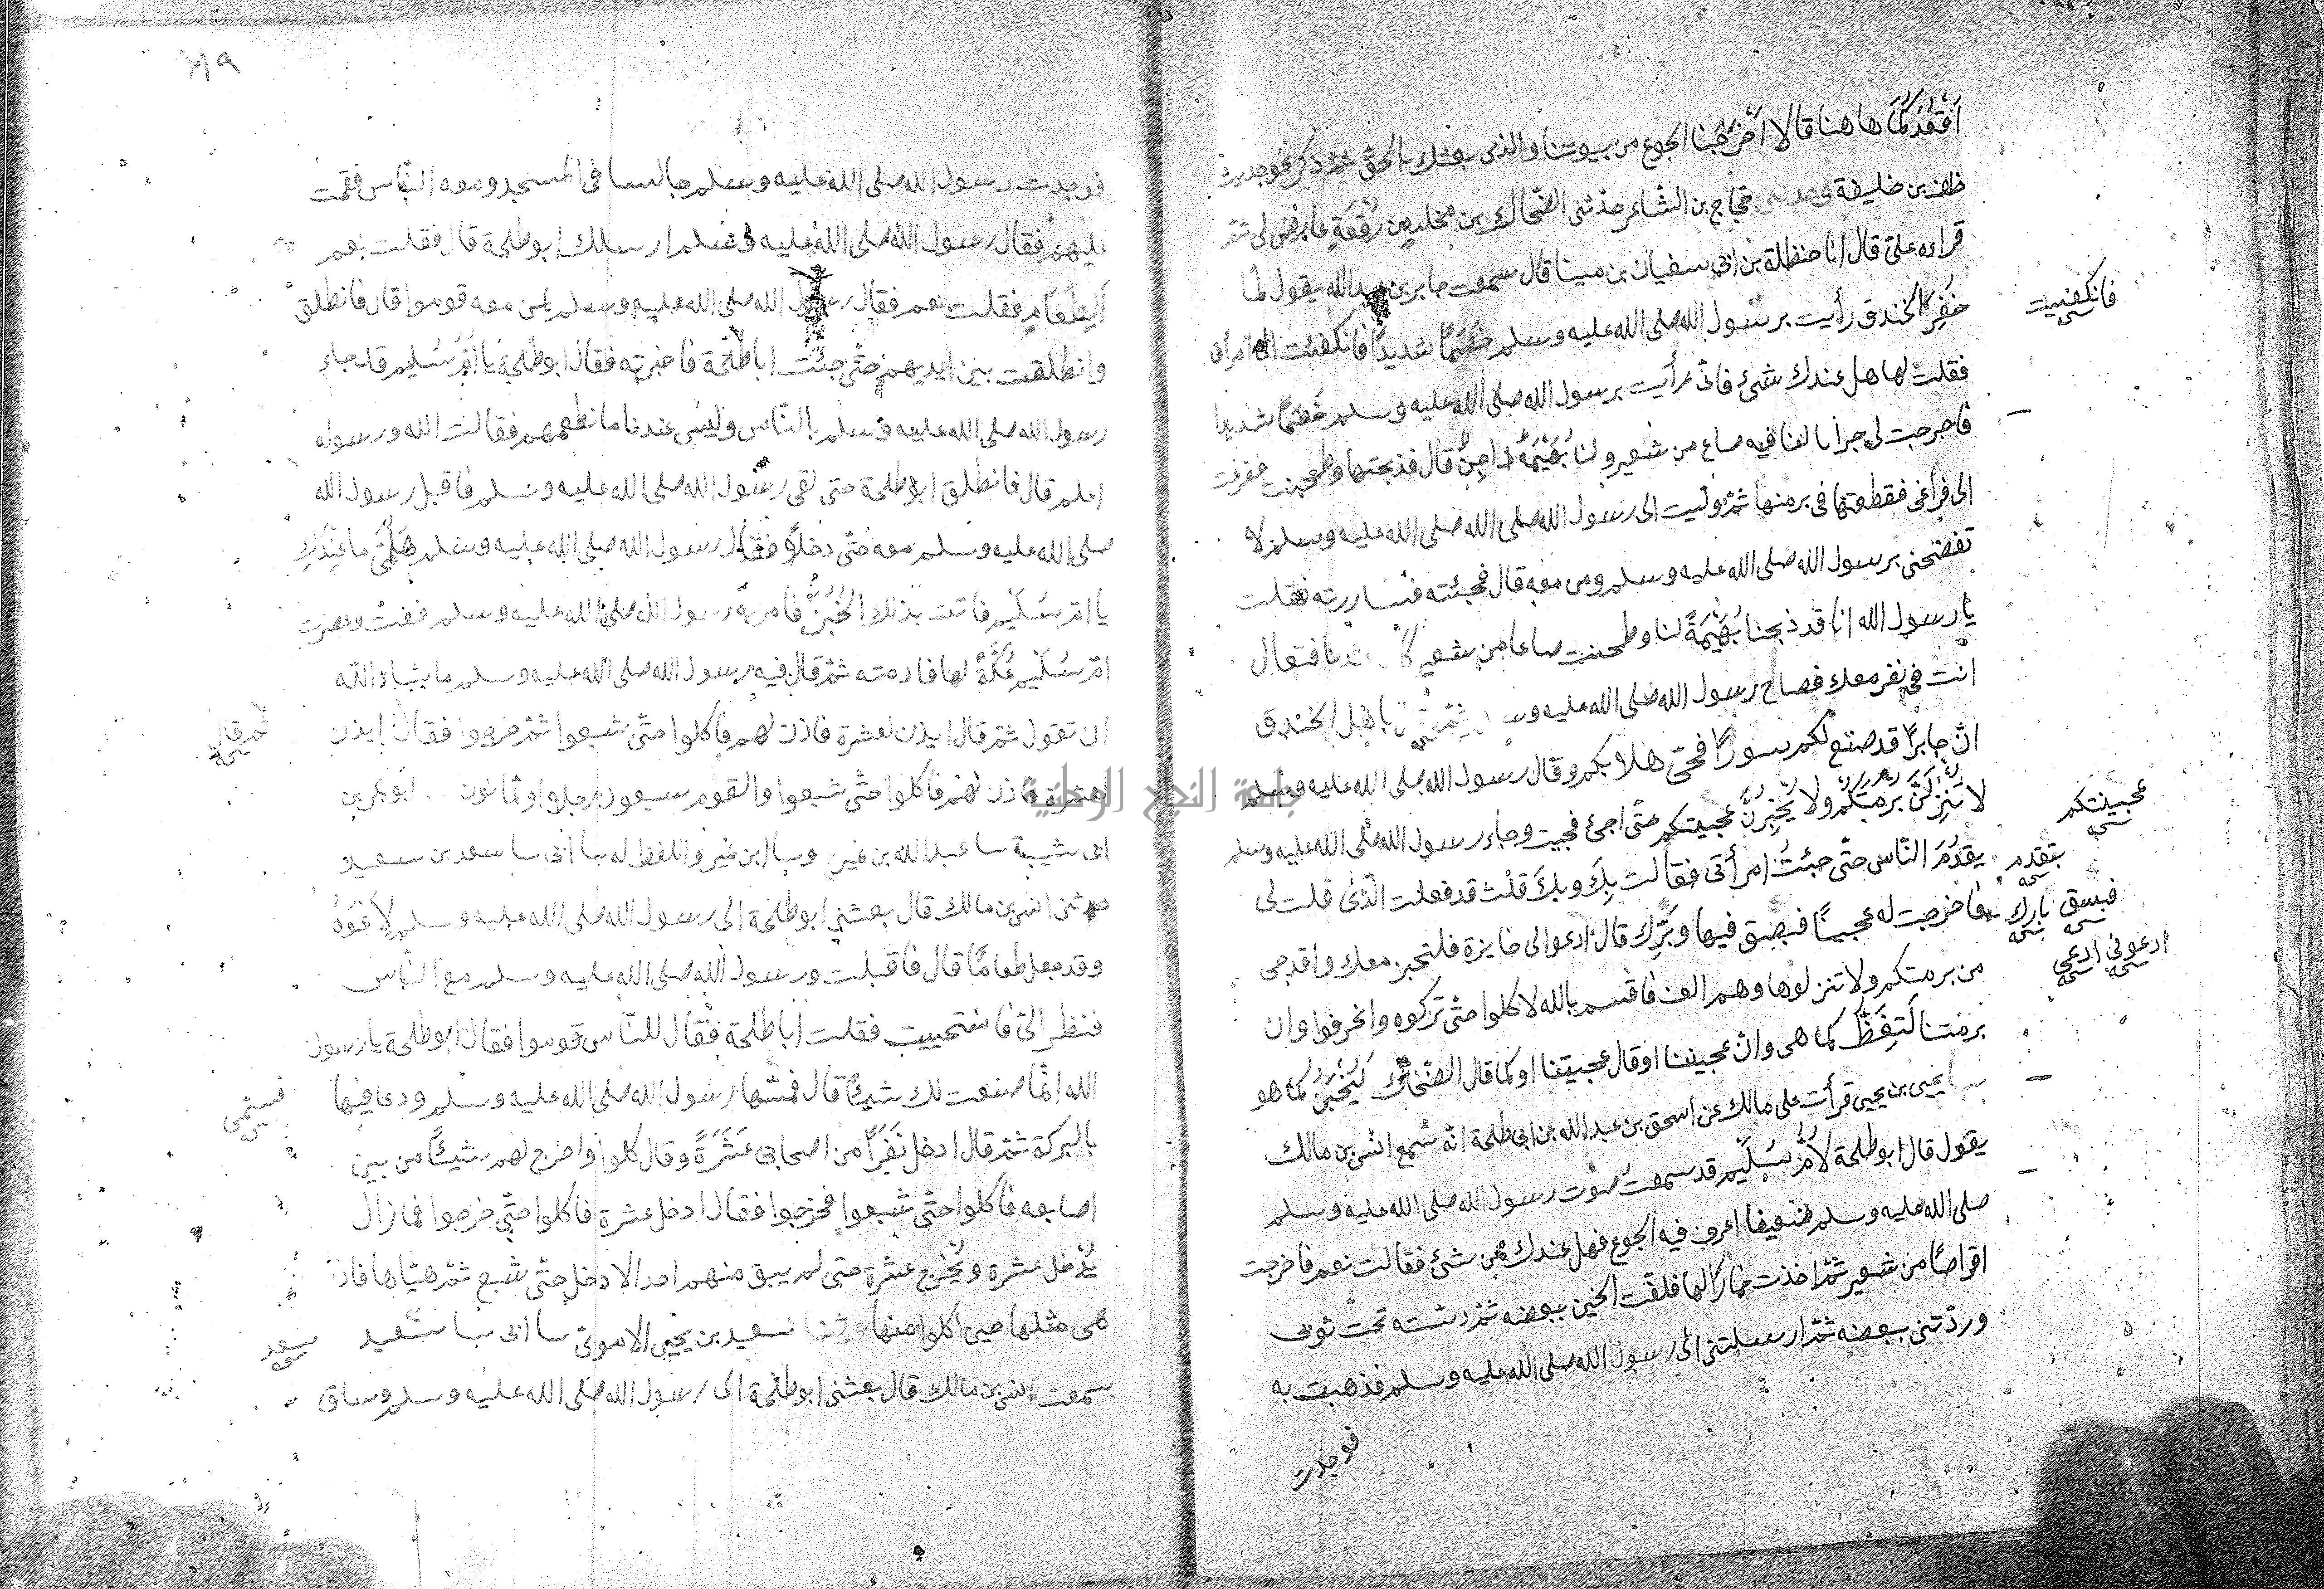 اَقْعَدَكُمَا هاهنا قالا اَخْرَجَنا الجوع من بيوتنا والذى بعثك بالحق ثم ذكر نحو حديث
خلف بن خليفة وحدثنى حجاج بن الشاعر حدثنى الضحاك بن مخلد من رُقْعَةٍ عارض لى ثم
قراءه علىّ قال انا حنظلة بن ابى سفيان بن مينا قال سمعت جابر بن عبد الله يقول لما
حُفِرَ الخندق رأيت برسول الله صلى الله عليه وسلم خَمَصًا شديدًا فانكفئت الى امرأتى
فانكفيت
فقلت لها هل عندك شئ فانى رأيت برسول الله صلى الله عليه وسلم خَمَصًا شديدا
فاخرجت لى جرابا لنا فيه صاع من شعير ولنا بُهَيْمَةٌ داجِنٌ قال فذبحتها وطحنت ففرغت
الى فراغى فقطعتها فى برمتها ثم وليت الى رسول الله صلى الله صلى الله عليه وسلم لا
تفضحنى برسول الله صلى الله عليه وسلم ومن معه قال فجئته فساررته فقلت
يا رسول الله انا قد ذبحنا بُهَيْمَةً لنا وطحنت صاعا من شعير كان عندنا فتعال
انت فى نفر معك فصاح رسول الله صلى الله عليه وسلم ثم يا اهل الخندق
ان جابرًا قد صنع لكم سورًا فحىّ هلا بكم وقال رسول الله صلى الله عليه وسلم
لا تُنزِلُنَّ بُرْمَتَكُمْ ولا تُخْبِزُنَّ عجينتكم حتى اجئ فجيت وجاء رسول الله صلى الله عليه وسلم
عجينتكم
يقدُمُ الناس حتى جئتُ امرأتى فقالت بِكَ وبِكَ قلت قد فعلت الذى قلت لى
يتقدم
فاخرجت له عجينًا فبصق فيها وبَرَّك قال ادعوا لى خابزة فلتخبز معك واقدحى
فبسق بارك
ادعونى ادعى
من برمتكم ولا تنزلوها وهم الف فاقسم بالله لاكلوا حتى تركوه وانحرفوا وان
برمتنا لَتَغِطُّ كما هى وان عجيننا اوقال عجينتنا او كما قال الضحاك لَيُخْبَزُ كما هو
يحيى بن يحيى قرأت على مالك عن اسحق بن عبد الله بن ابى طلحة انه سمع انس بن مالك
يقول قال ابو طلحة لامّ سُلَيم قد سمعت صوت رسول الله صلى الله عليه وسلم
صلى الله عليه وسلم ضعيفا اعرف فيه الجوع فهل عندك من شئ فقالت نعم فاخرجت
اقراصًا من شعير ثم اخذت خمارًا لها فلفّت الخبز ببعضه ثم دسته تحت ثوبى
وردّتنى ببعضه ثم ارسلتنى الى رسول الله صلى الله عليه وسلم فذهبت به
فوجدت
٢١٩
فوجدت رسول الله صلى الله عليه وسلم جالسا فى المسجد ومعه الناس فقمت
عليهم فقال رسول الله صلى الله عليه وسلم ارسلك ابو طلحة قال فقلت نعم
اَلِطَعَامٍ فقلت نعم فقال رسول الله صلى الله عليه وسلم لمن معه قوموا قال فانطلق
وانطلقت بين ايديهم حتى جئت اباطلحة فاخبرته فقال ابو طلحة يا امّ سُليم قد جاء
رسول الله صلى الله عليه وسلم بالناس وليس عندنا ما نطعمهم فقالت الله ورسوله
اعلم قال فانطلق ابو طلحة حتى لقى رسول الله صلى الله عليه وسلم فاقبل رسول الله
صلى الله عليه وسلم معه حتى دخلا فقال رسول الله صلى الله عليه وسلم هَلُمِّى ما عِنْدَكِ
يا ام سُلَيْم فاتت بذلك الخُبْز فامر به رسول الله صلى الله عليه وسلم ففت وعصرت
ام سُلَيْم عُكَّةً لها فادمته ثم قال فيه رسول الله صلى الله عليه وسلم ما شاء الله
ان تقول ثم قال ايذن لعشرة فاذن لهم فاكلوا حتى شبعوا ثم خرجوا فقال ايذن
ثم قال
لعشرة فاذن لهم فاكلوا حتى شبعوا والقوم سبعون رجلا او ثمانون ابو بكر بن
جامعة النجاح الوطنية
ابى شيبة سا عبد الله بن نمير وسا ابن نمير واللفظ له سا ابى سا سعد بن سعيد
حدثنى انس بن مالك قال بعثنى ابو طلحة الى رسول الله صلى الله عليه وسلم لادعُوَهُ
وقد جعل طعامًا قال فاقبلت ورسول الله صلى الله عليه وسلم مع الناس
فنظر الىّ فاستحييت فقلت اباطلحة فقال للناس قوموا فقال ابو طلحة يا رسول
الله انما صنعت لك شيئًا قال فمسّها رسول الله صلى الله عليه وسلم ودعا فيها
بالبركة ثم قال ادخل نَفَرًا من اصحابى عَشَرَةً وقال كلوا واخرج لهم شيئًا من بين
اصابعه فاكلوا حتى شبعوا فخرجوا فقال ادخل عشرة فاكلوا حتى خرجوا فما زال
يُدْخل عشرة ويُخْرج عشرة حتى لم يبق منهم احد الا دخل حتى شبع ثم هيّاها فاذا
هى مثلها حين اكلوا منها سعيد بن يحيى الاموىّ سا ابى سا سعيد
سعد
سمعت انس بن مالك قال بعثنى ابو طلحة الى رسول الله صلى الله عليه وسلم وساق